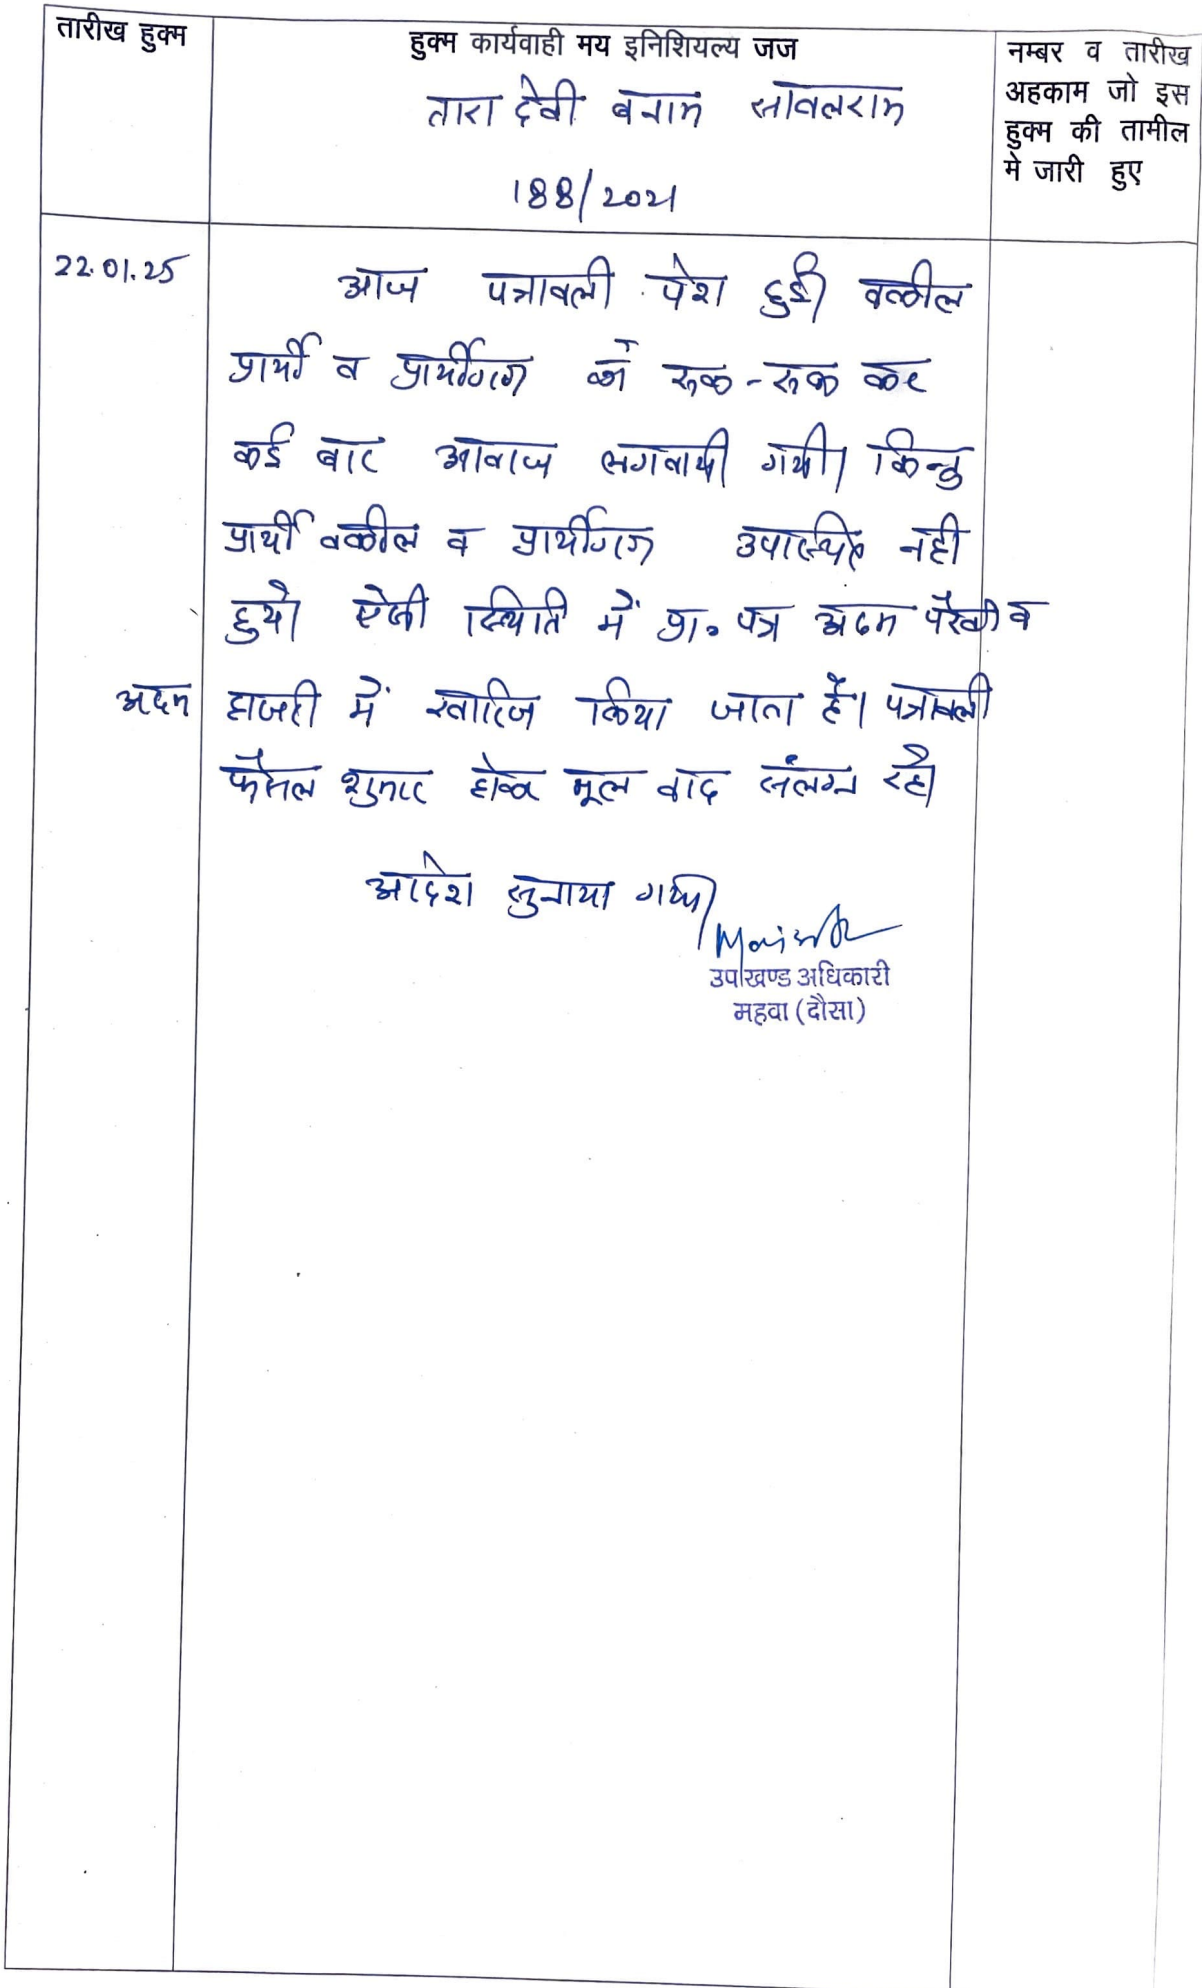 तारीख हुक्म
हुक्म कार्यवाही मय इनिशियल्य जज
नम्बर व तारीख
अहकाम जो इस
हुक्म की तामील
मे जारी हुए
तारा देवी बनाम सावलराम
188/2021
22.01.25
आज पत्रावली पेश हुई। वकील
प्रार्थी व प्रार्थीगण को रूक-रूक कर
कई बार आवाज लगवायी गयी। किन्तु
प्रार्थी वकील व प्रार्थीगण उपस्थित नही
हुये। ऐसी स्थिति में प्रा॰ पत्र अदम पैरवी व
अदम हाजरी में खारिज किया जाता है। पत्रावली
फैसल शुमार होकर मूल वाद संलग्न रहे।
आदेश सुनाया गया।
उपखण्ड अधिकारी
महवा (दौसा)